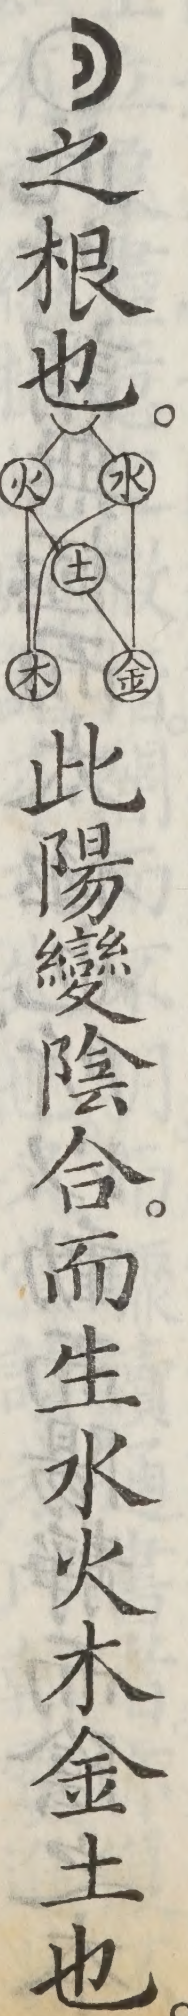 之根也。火水土木金此陽變陰合。而生水火木金土也。